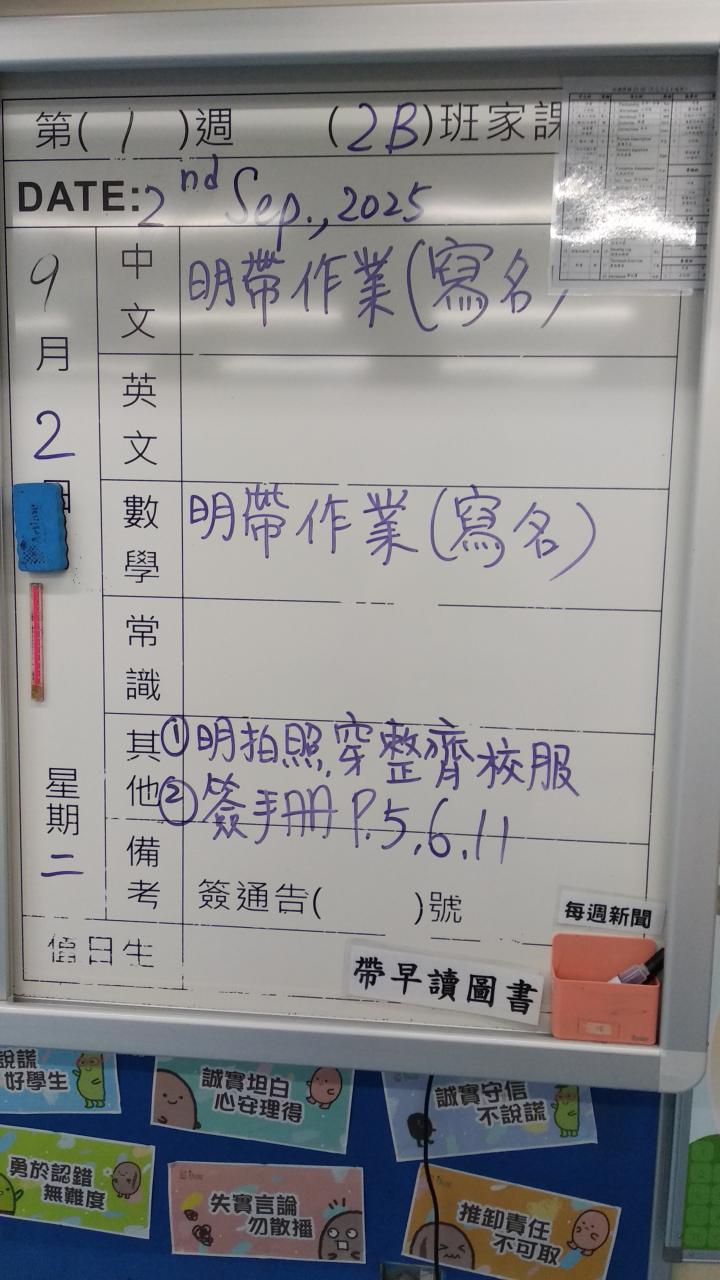 第( 1 )週 (2B)班家課
DATE: 2nd Sep., 2025
9月2日
星期二
中文 明帶作業(寫名)
英文
數學 明帶作業(寫名)
常識
其他 ①明拍照,穿整齊校服
②簽手册 P.5,6,11
備考 簽通告( )號
值日生
每週新聞
帶早讀圖書
說謊
好學生
誠實坦白
心安理得
誠實守信
不說謊
勇於認錯
無難度
失實言論
勿散播
推卸責任
不可取